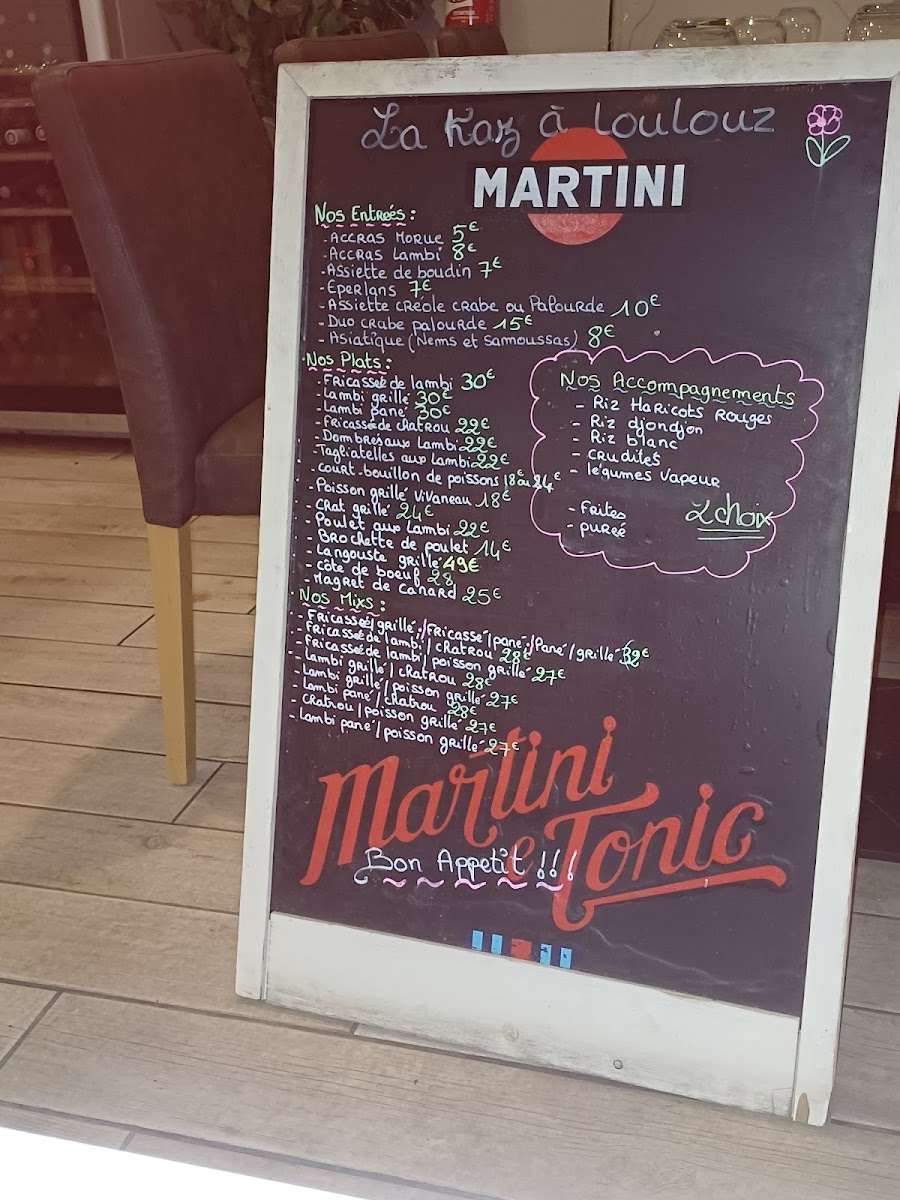 La Kaz à Loulouz
MARTINI
Nos Entreés :
- Accras Morue 5€
- Accras Lambi 8€
- Assiette de boudin 7€
- Eperlans 7€
- Assiette créole crabe ou Palourde 10€
- Duo crabe palourde 15€
- Asiatique (Nems et Samoussas) 8€
Nos Plats :
- Fricasseé de lambi 30€
- Lambi grillé 30€
- Lambi pané 30€
- Fricasseé de chatrou 22€
- Dombres aux Lambi 22€
- Tagliatelles aux Lambi 22€
- court-bouillon de poissons 18€ ou 24€
- Poisson grillé Vivaneau 18€
- Chat grillé 24€
- Poulet aux Lambi 22€
- Brochette de poulet 14€
- Langouste grillé 49€
- Côte de boeuf 28
- Magret de canard 25€
Nos Mixs :
- Fricasseé/grillé,/Fricassé/pané,/Pané/grillé 32€
- Fricasseé de lambi/chatrou 28€
- Fricasseé de lambi/poisson grillé 27€
- Lambi grillé/chatrou 28€
- Lambi grillé/poisson grillé 27€
- Lambi pané/chatrou 28€
- Chatrou/poisson grillé 27€
- Lambi pané/poisson grillé 27€
Nos Accompagnements
- Riz Haricots Rouges
- Riz djondjon
- Riz blanc
- crudités
- légumes vapeur
- Frites
- pureé
2 choix
Martini e Tonic
Bon Appetit !!!